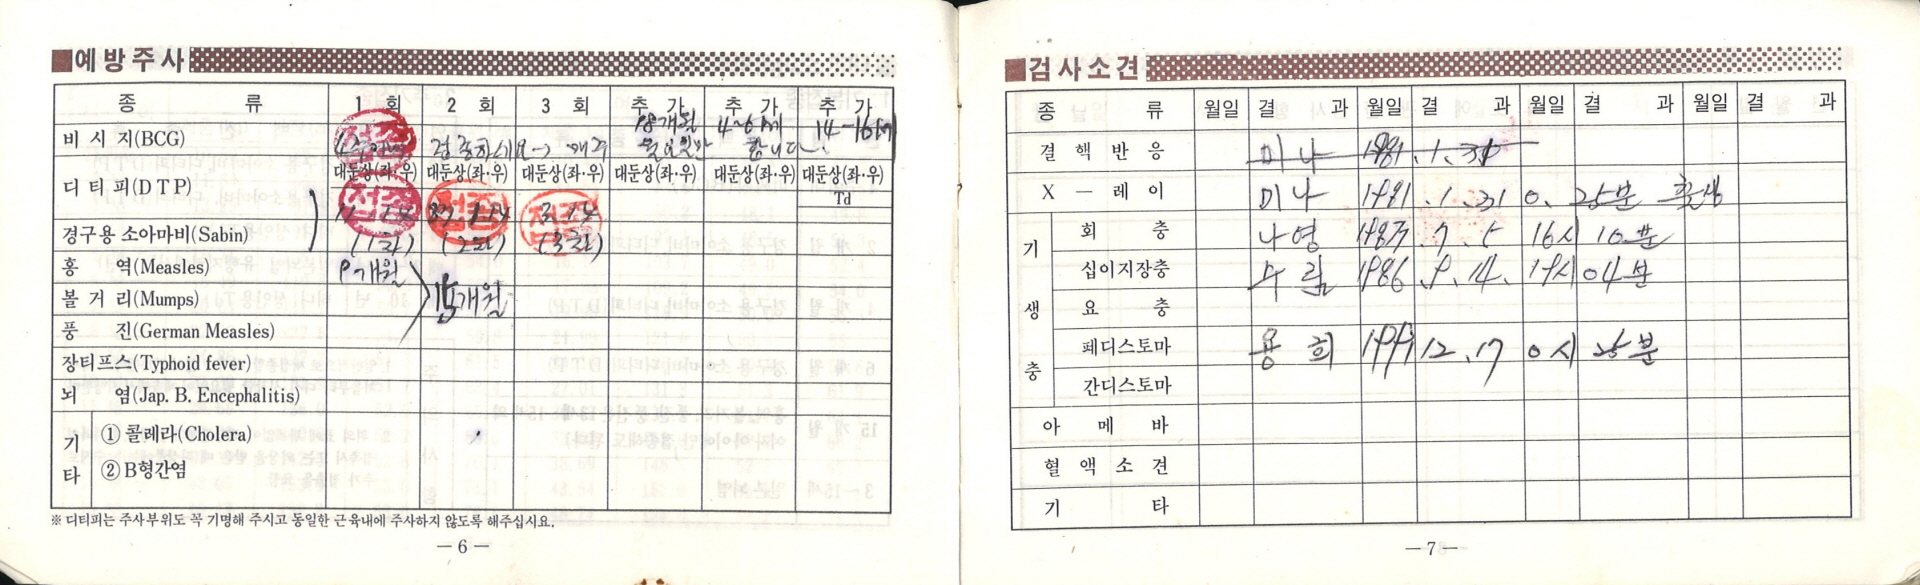 예방주사
종 류 1 회 2 회 3 회 추 가 추 가 추 가
비 시 지(BCG) 18개월 4~6세 14-16세
접종하세요 매주 월요일만 합니다.
대둔상(좌·우) 대둔상(좌·우) 대둔상(좌·우) 대둔상(좌·우) 대둔상(좌·우) 대둔상(좌·우)
디 티 피(D T P) Td
3. 14
경구용 소아마비(Sabin) (1차) (2차) (3차)
홍 역(Measles) 9개월
볼 거 리(Mumps) 15개월
풍 진(German Measles)
장티프스(Typhoid fever)
뇌 염(Jap. B. Encephalitis)
기 타
① 콜레라(Cholera)
② B형간염
※ 디티피는 주사부위도 꼭 기명해 주시고 동일한 근육내에 주사하지 않도록 해주십시요.
— 6 —
검사소견
종 류 월일 결 과 월일 결 과 월일 결 과 월일 결 과
결 핵 반 응 미 나 1981. 1. 31
X — 레 이 미 나 1981. 1. 31 0. 25분 출생
기 생 충
회 충 나 영 1987. 7. 5 16시 10분
십이지장충 수 림 1986. 9. 14. 19시 04분
요 충
페디스토마 용 희 1991 12. 17 0시 25분
간디스토마
아 메 바
혈 액 소 견
기 타
— 7 —